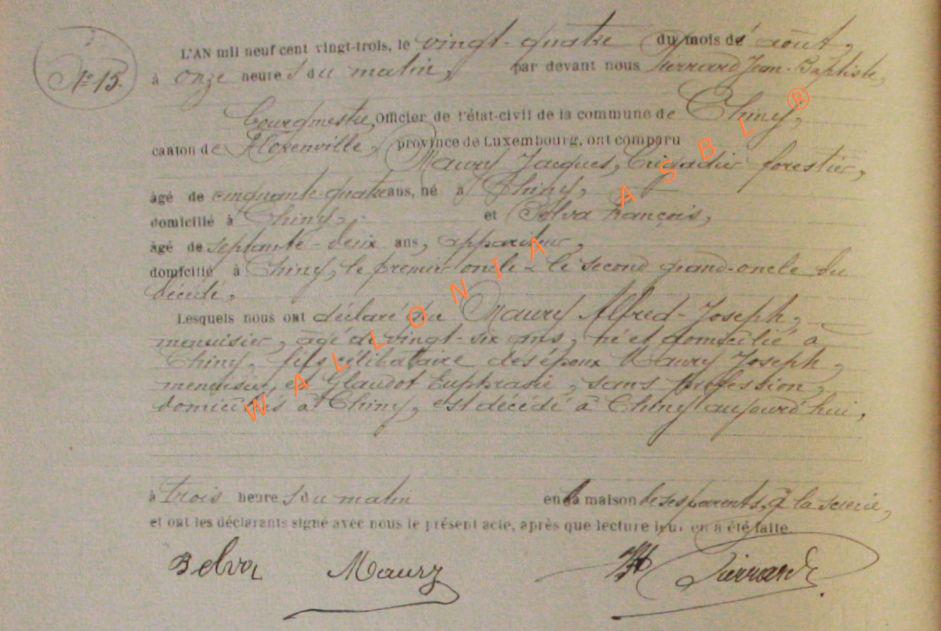 N° 15.
L'AN mil neuf cent vingt-trois, le vingt-quatre du mois de août,
à onze heure s du matin, par devant nous Pierrard Jean-Baptiste,
bourgmestre, Officier de l'état-civil de la commune de Chiny,
canton de Florenville, province de Luxembourg, ont comparu
Maury Jacques, brigadier forestier,
âgé de cinquante quatre ans, né à Chiny,
domicilié à Chiny, et Belva François,
âgé de septante-deux ans, appariteur,
domicilié à Chiny, le premier oncle - le second grand-oncle du
décédé,
Lesquels nous ont déclaré que Maury Alfred-Joseph,
menuisier, âgé de vingt-six ans, né et domicilié à
Chiny, fils célibataire des époux Maury Joseph,
menuisier, et Glaudot Euphrasie, sans profession,
domiciliés à Chiny, est décédé à Chiny aujourd'hui,
à trois heure s du matin en la maison de ses parents, à la scierie,
et ont les déclarants signé avec nous le présent acte, après que lecture leur en a été faite.
Belva Maury Pierrard
WALLONIA ASBL ®